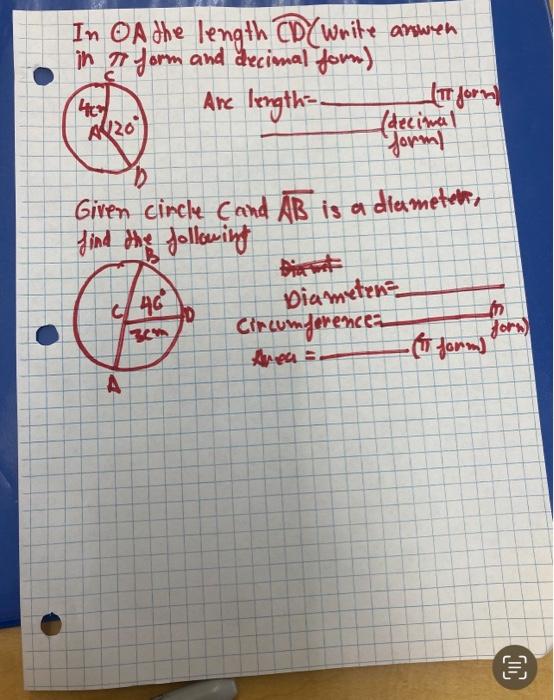 In ⊙A the length CD (Write answer
in π form and decimal form)
C
4cm
A 120°
D
Arc length = ________ (π form)
________ (decimal
form)
Given circle C and AB is a diameter,
find the following
B
C 46°
D
3cm
A
Diamet
Diameter = ________
Circumference = ________ (π
form)
Area = ________ (π form)